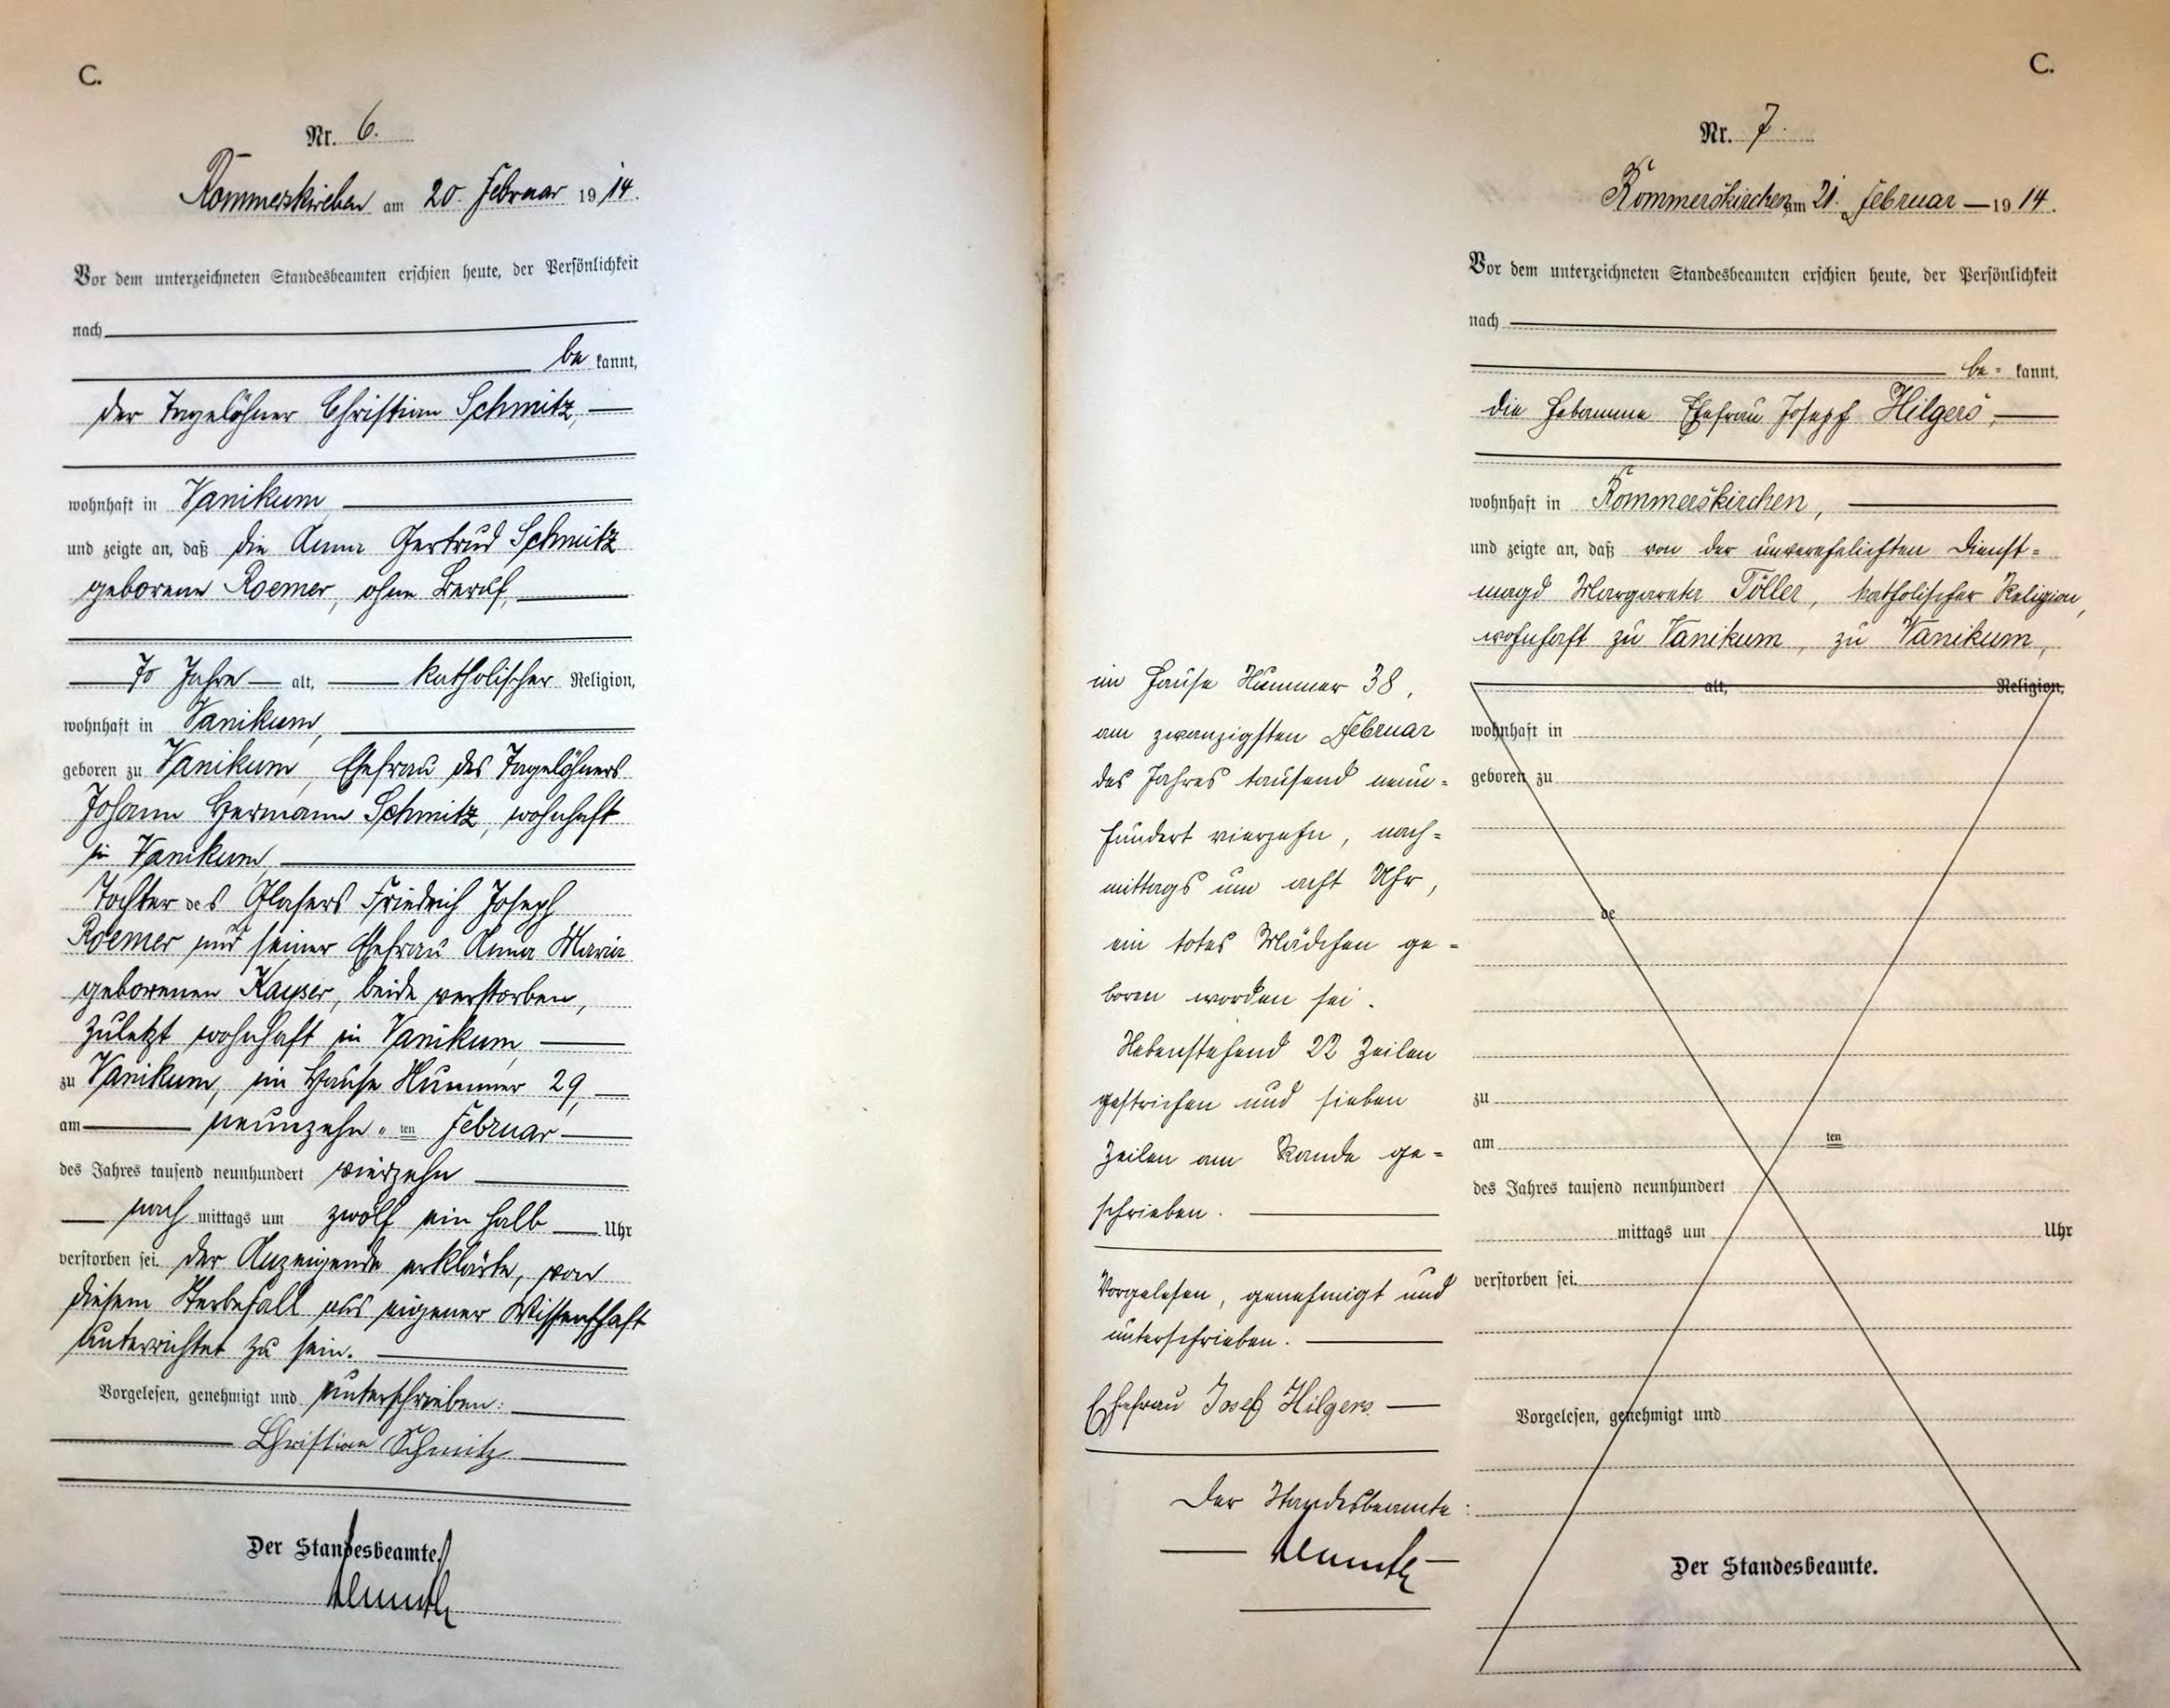 C.
Nr. 6.
Rommerskirchen am 20. Februar 1914.
Vor dem unterzeichneten Standesbeamten erschien heute, der Persönlichkeit
nach
be kannt,
der Tagelöhner Christian Schmitz,
wohnhaft in Vanikum
und zeigte an, daß die Anna Gertrud Schmitz
geborene Roemer, ohne Beruf,
70 Jahre alt, katholischer Religion,
wohnhaft in Vanikum,
geboren zu Vanikum, Ehefrau des Tagelöhners
Johann Hermann Schmitz, wohnhaft
in Vanikum,
Tochter des Glasers Friedrich Joseph
Roemer und seiner Ehefrau Anna Maria
geborenen Kayser, beide verstorben,
zuletzt wohnhaft in Vanikum
zu Vanikum, im Hause Nummer 29,
am neunzehn ten Februar
des Jahres tausend neunhundert vierzehn
nach mittags um zwölf ein halb Uhr
verstorben sei. Der Anzeigende erklärte, von
diesem Sterbefall aus eigener Wissenschaft
unterrichtet zu sein.
Vorgelesen, genehmigt und unterschrieben:
Christian Schmitz
Der Standesbeamte.
C.
Nr. 7.
Rommerskirchen am 21. Februar 1914.
Vor dem unterzeichneten Standesbeamten erschien heute, der Persönlichkeit
nach
be= kannt,
die Hebamme Ehefrau Joseph Hilgers,
wohnhaft in Rommerskirchen,
und zeigte an, daß von der unverehelichten Dienst=
magd Margareta Töller, katholischer Religion,
wohnhaft zu Vanikum, zu Vanikum,
im Hause Nummer 38,
am zwanzigsten Februar
des Jahres tausend neun=
hundert vierzehn, nach=
mittags um acht Uhr,
ein totes Mädchen ge=
boren worden sei.
Nebenstehend 22 Zeilen
gestrichen und sieben
Zeilen am Rande ge=
schrieben.
Vorgelesen, genehmigt und
unterschrieben.
Ehefrau Josef Hilgers
Der Standesbeamte:
alt, Religion,
wohnhaft in
geboren zu
de
zu
am ten
des Jahres tausend neunhundert
mittags um Uhr
verstorben sei.
Vorgelesen, genehmigt und
Der Standesbeamte.